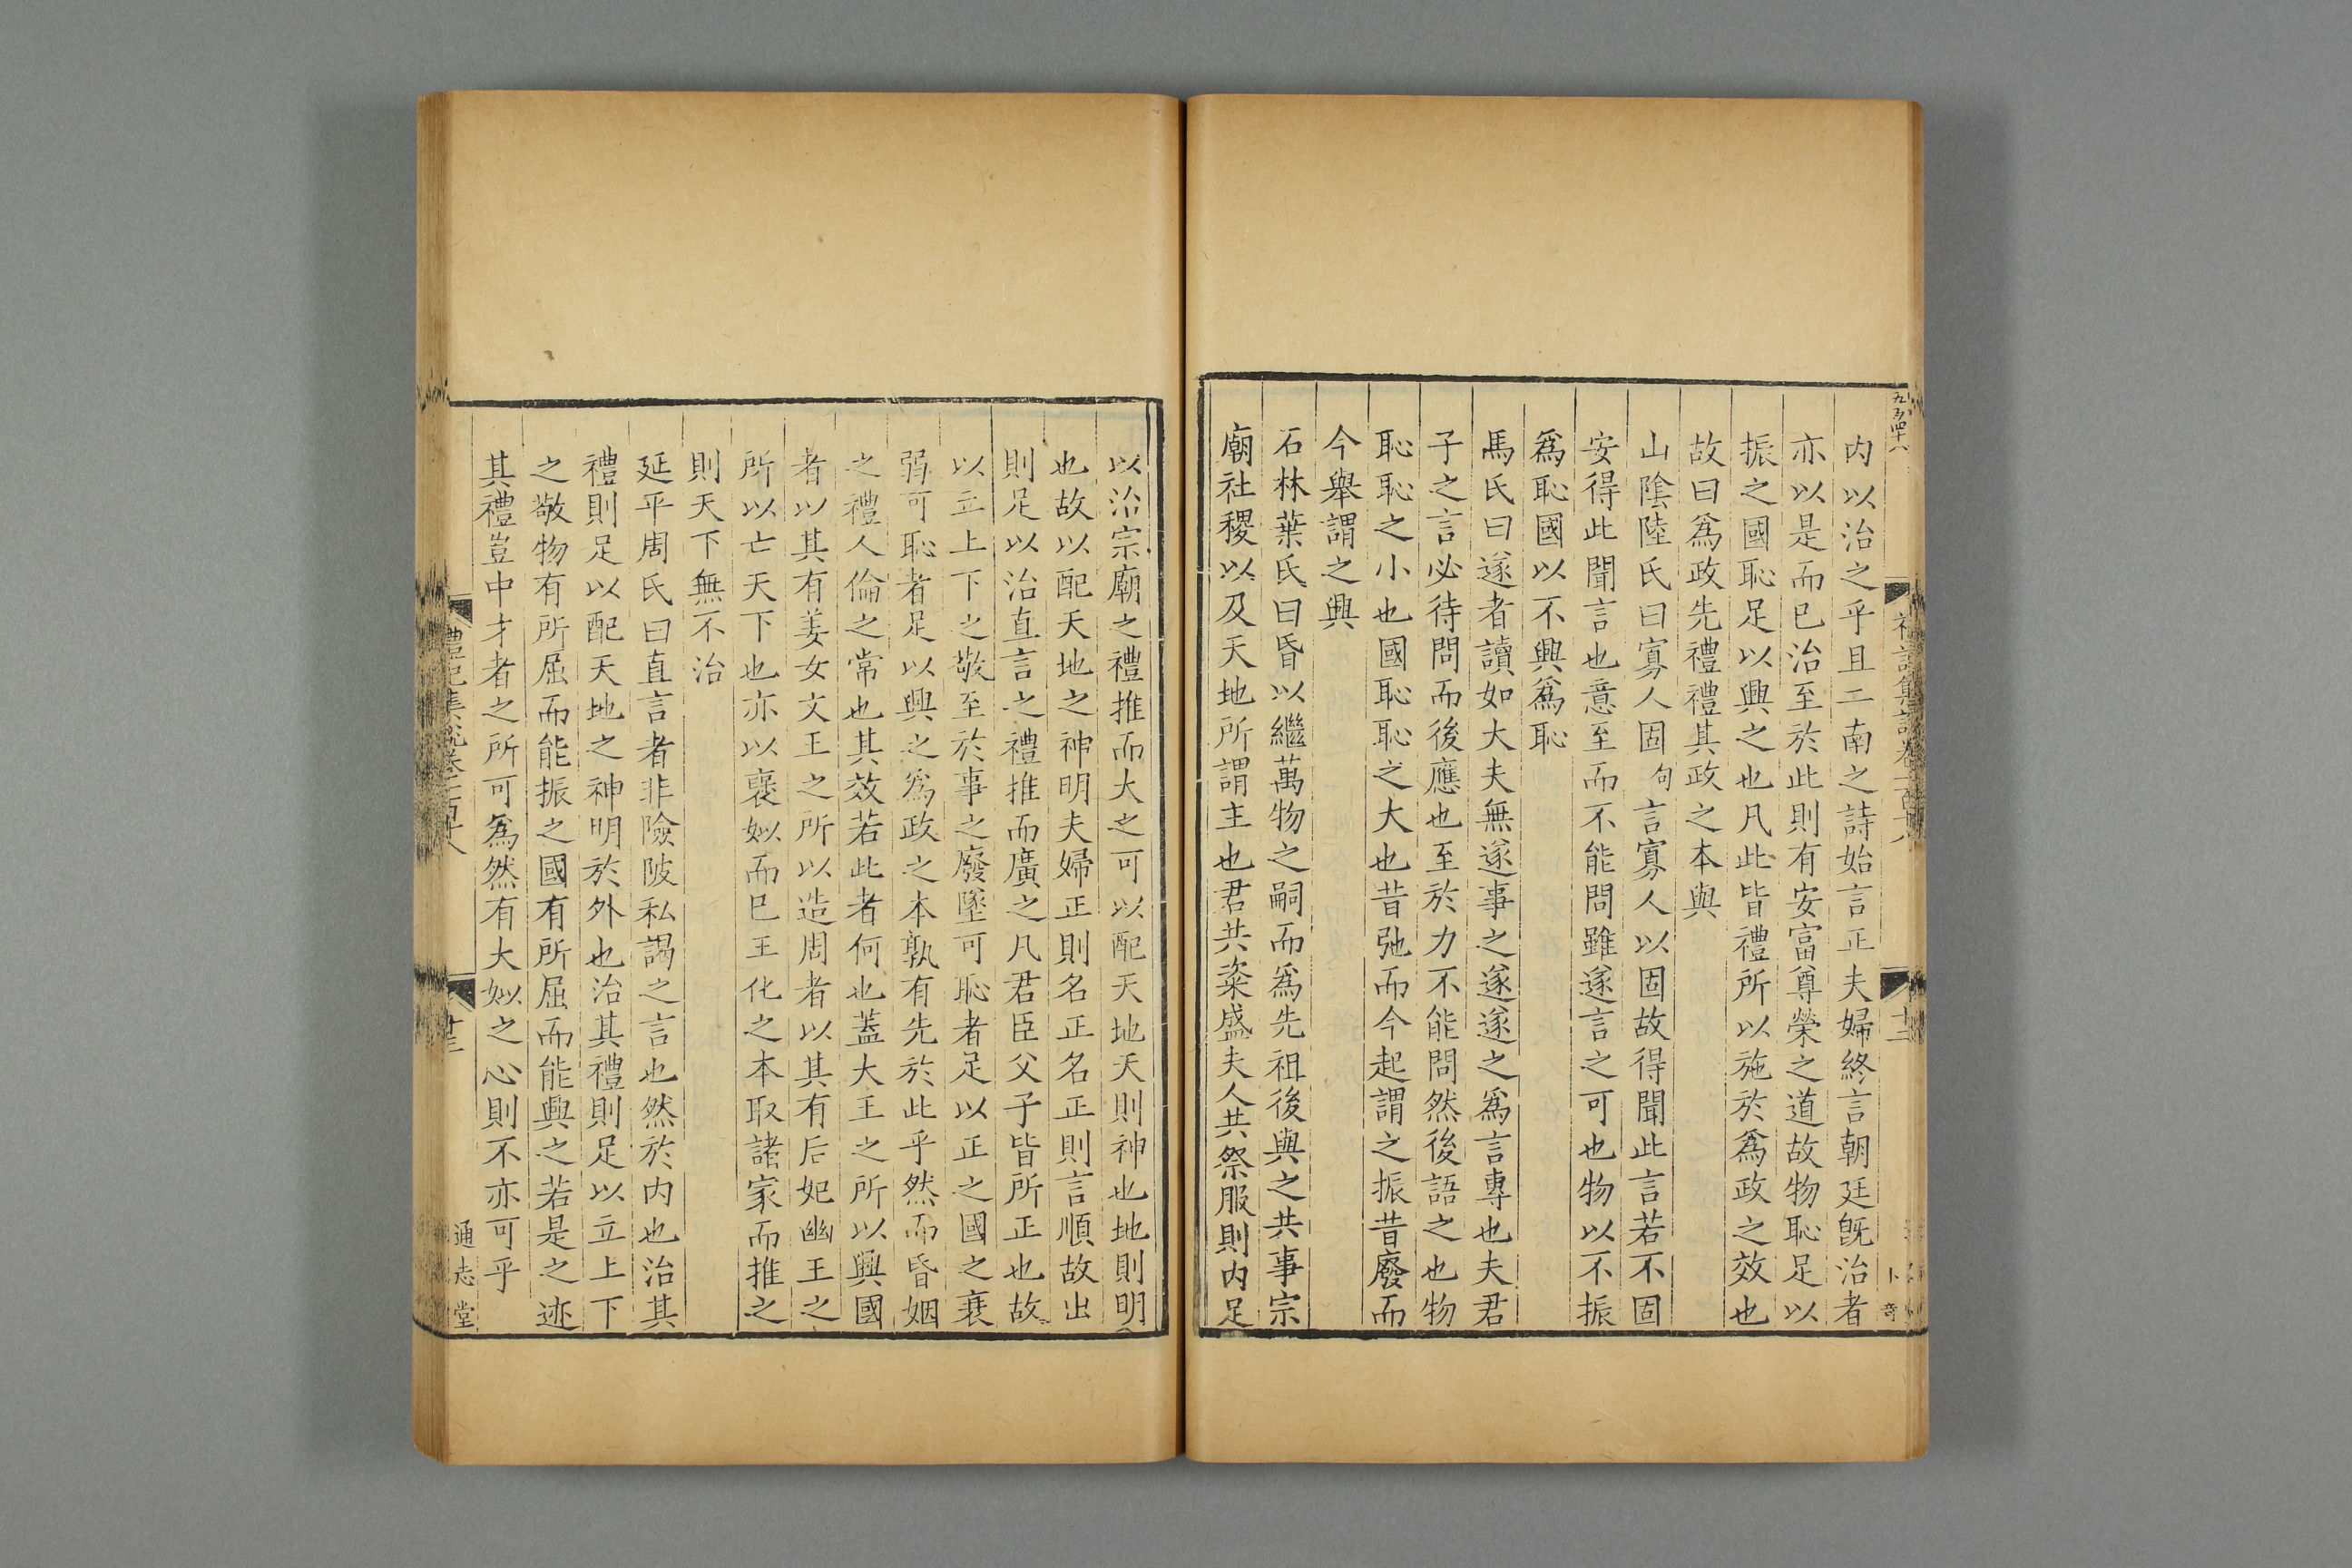 内以治之乎且二南之詩始言正夫婦終言朝廷旣治者
亦以是而已治至於此則有安富尊榮之道故物恥足以
振之國恥足以興之也凡此皆禮所以施於爲政之效也
故曰爲政先禮禮其政之本與
山陰陸氏曰寡人固句言寡人以固故得聞此言若不固
安得此聞言也意至而不能問雖遂言之可也物以不振
爲恥國以不興爲恥
馬氏曰遂者讀如大夫無遂事之遂遂之爲言專也夫君
子之言必待問而後應也至於力不能問然後語之也物
恥恥之小也國恥恥之大也昔弛而今起謂之振昔廢而
今舉謂之興
石林葉氏曰昏以繼萬物之嗣而爲先祖後與之共事宗
廟社稷以及天地所謂主也君共粢盛夫人共祭服則内足
以治宗廟之禮推而大之可以配天地天則神也地則明
也故以配天地之神明夫婦正則名正名正則言順故出
則足以治直言之禮推而廣之凡君臣父子皆所正也故
以立上下之敬至於事之廢墜可恥者足以正之國之衰
弱可恥者足以興之爲政之本孰有先於此乎然而昏姻
之禮人倫之常也其效若此者何也蓋大王之所以興國
者以其有姜女文王之所以造周者以其有后妃幽王之
所以亡天下也亦以襃姒而已王化之本取諸家而推之
則天下無不治
延平周氏曰直言者非險陂私謁之言也然於内也治其
禮則足以配天地之神明於外也治其禮則足以立上下
之敬物有所屈而能振之國有所屈而能興之若是之迹
其禮豈中才者之所可爲然有大姒之心則不亦可乎
禮記集說卷一百十八
通志堂